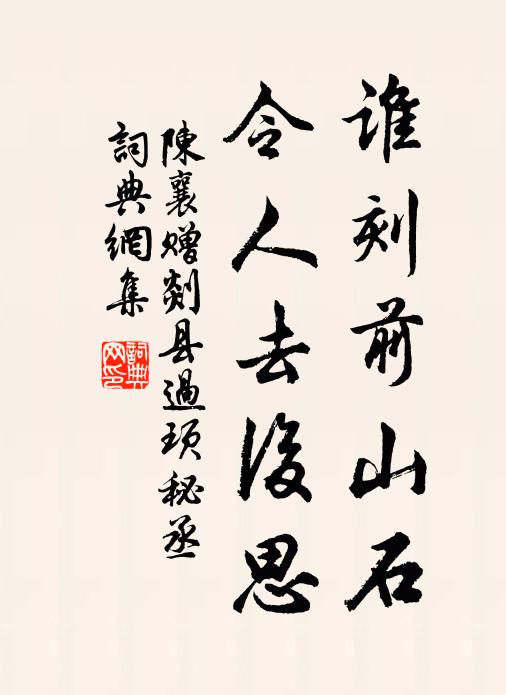 誰刻前山石
令人去後思
陳襄贈剡县過項秘丞
詞典網集
詞典
网印